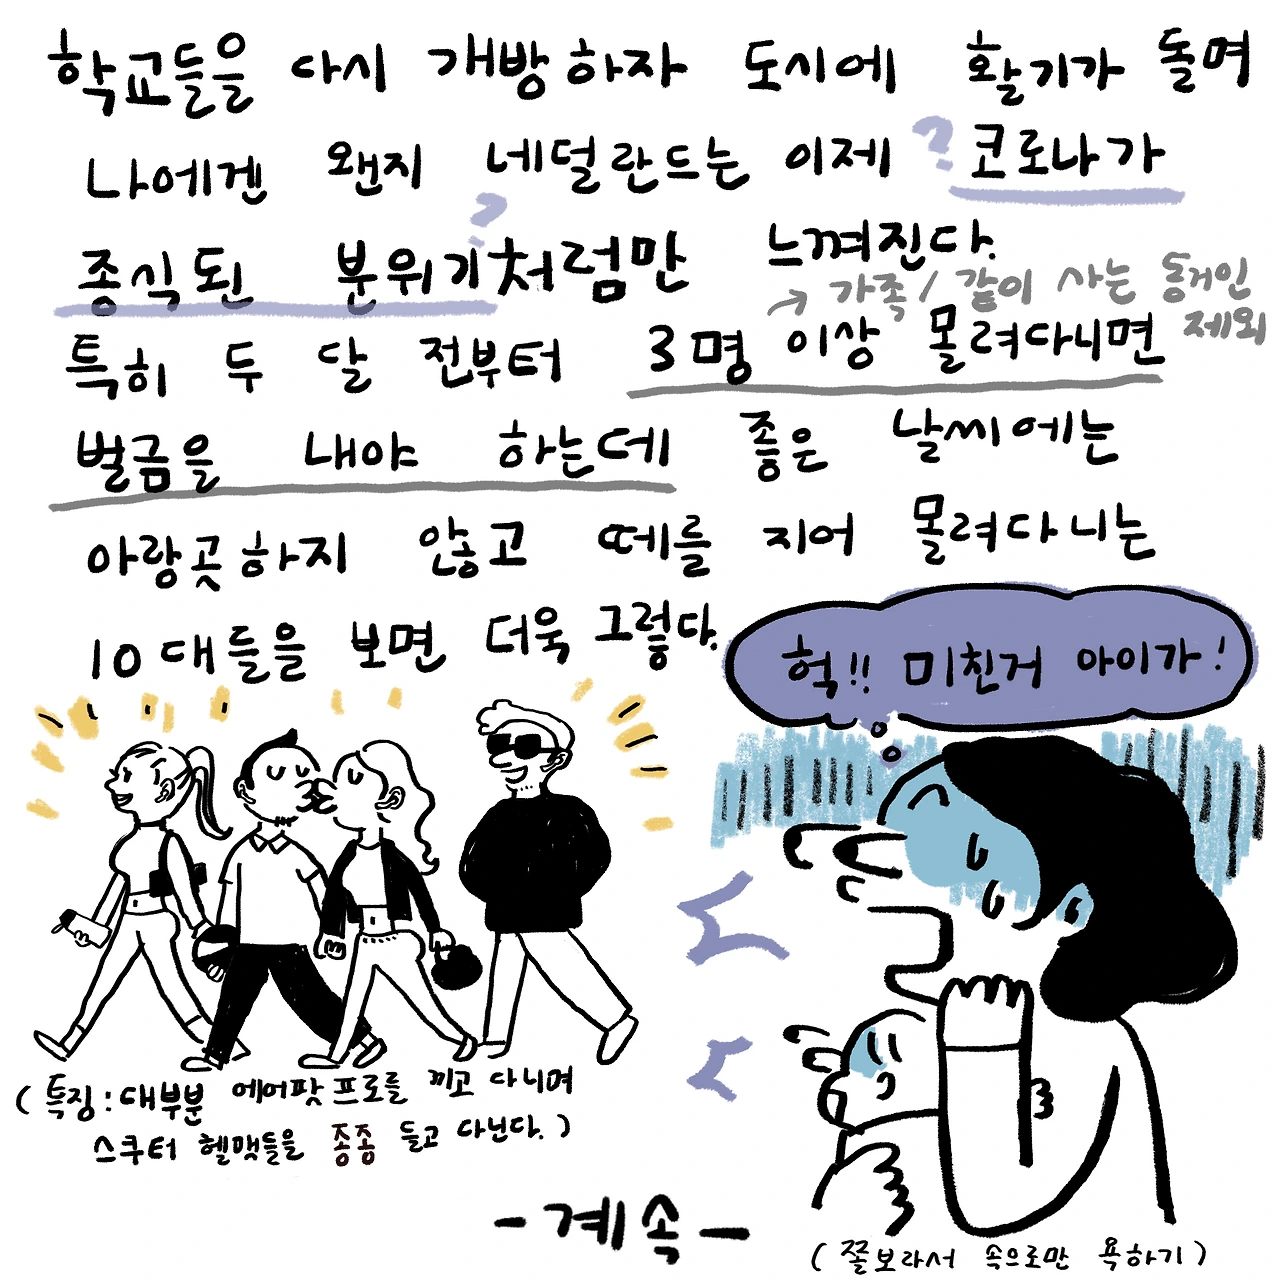 학교들을 다시 개방하자 도시에 활기가 돌며
나에겐 왠지 네덜란드는 이제 ? 코로나가
종식된 분위기처럼만 느껴진다.
?
→ 가족 / 같이 사는 동거인
제외
특히 두 달 전부터 3명 이상 몰려다니면
벌금을 내야 하는데 좋은 날씨에는
아랑곳하지 않고 떼를 지어 몰려다니는
10대들을 보면 더욱 그렇다.
헉!! 미친거 아이가!
(특징:대부분 에어팟프로를 끼고 다니며
스쿠터 헬맷들을 종종 들고 다닌다.)
- 계속 -
(쫄보라서 속으로만 욕하기)